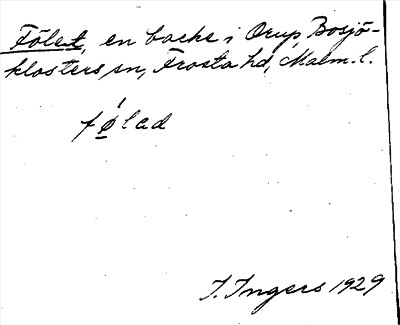 Fölet, en backe i Orup, Bosjö-
klosters sn, Frosta hd, Malm. l.
fǿlad
I. Ingers 1929